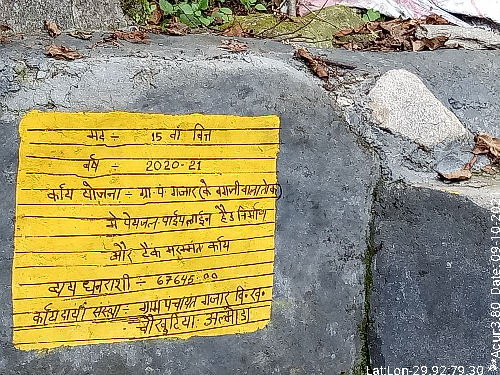 मद ÷ 15 वां वित्त
वर्ष ÷ 2020-21
कार्य योजना ÷ ग्रा. पं गजार (के बगानी चानातोक)
मे पेयजल पाईपलाईन हैड निर्माण
और टैंक मरम्मत कार्य
व्यय धनराशी ÷ 67645.00
कार्यदायी संस्था - ग्राम पंचायत गजार वि.ख.
चौखुटिया अल्मोडा
Lat:Lon-29.92:79.30
**Acur:3.80 Date:09-10-201